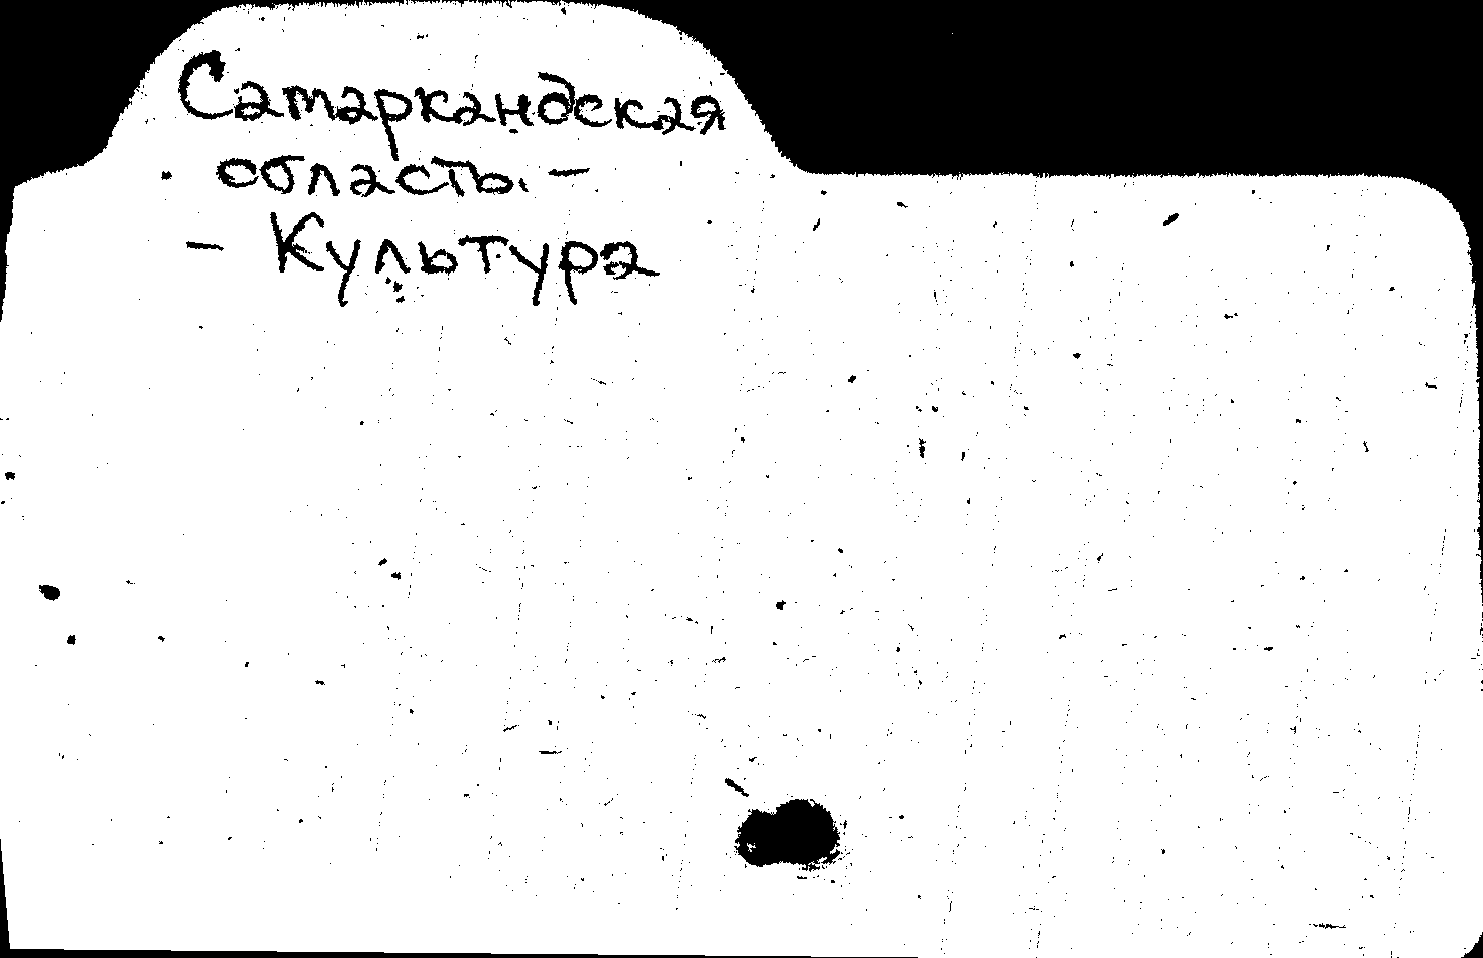 Самаркандская
область. -
- Культура